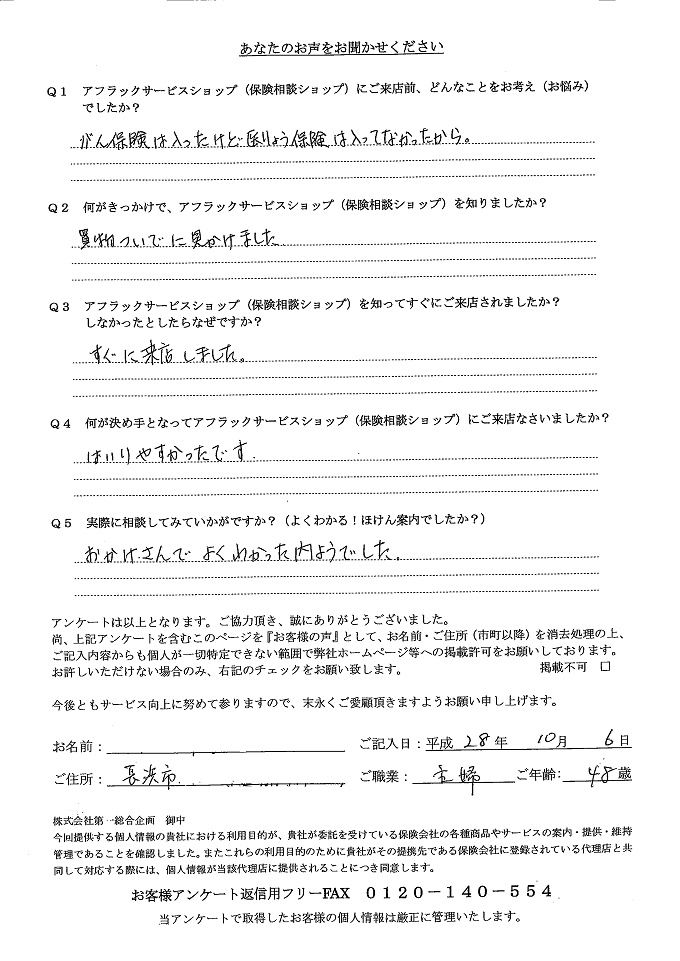 あなたのお声をお聞かせください
Q1 アフラックサービスショップ（保険相談ショップ）にご来店前、どんなことをお考え（お悩み）
でしたか？
がん保険は入ったけど医りょう保険は入ってなかったから。
Q2 何がきっかけで、アフラックサービスショップ（保険相談ショップ）を知りましたか？
買物ついでに見かけました
Q3 アフラックサービスショップ（保険相談ショップ）を知ってすぐにご来店されましたか？
しなかったとしたらなぜですか？
すぐに来店しました。
Q4 何が決め手となってアフラックサービスショップ（保険相談ショップ）にご来店なさいましたか？
はいりやすかったです.
Q5 実際に相談してみていかがですか？（よくわかる！ほけん案内でしたか？）
おかげさんでよくわかった内ようでした.
アンケートは以上となります。ご協力頂き、誠にありがとうございました。
尚、上記アンケートを含むこのページを『お客様の声』として、お名前・ご住所（市町以降）を消去処理の上、
ご記入内容からも個人が一切特定できない範囲で弊社ホームページ等への掲載許可をお願いしております。
お許しいただけない場合のみ、右記のチェックをお願い致します。 掲載不可 □
今後ともサービス向上に努めて参りますので、末永くご愛顧頂きますようお願い申し上げます。
お名前： ご記入日：平成 28年 10月 6日
ご住所：長浜市 ご職業：主婦 ご年齢：48歳
株式会社第一総合企画 御中
今回提供する個人情報の貴社における利用目的が、貴社が委託を受けている保険会社の各種商品やサービスの案内・提供・維持
管理であることを確認しました。またこれらの利用目的のために貴社がその提携先である保険会社に登録されている代理店と共
同して対応する際には、個人情報が当該代理店に提供されることにつき同意します。
お客様アンケート返信用フリーFAX 0120－140－554
当アンケートで取得したお客様の個人情報は厳正に管理いたします。